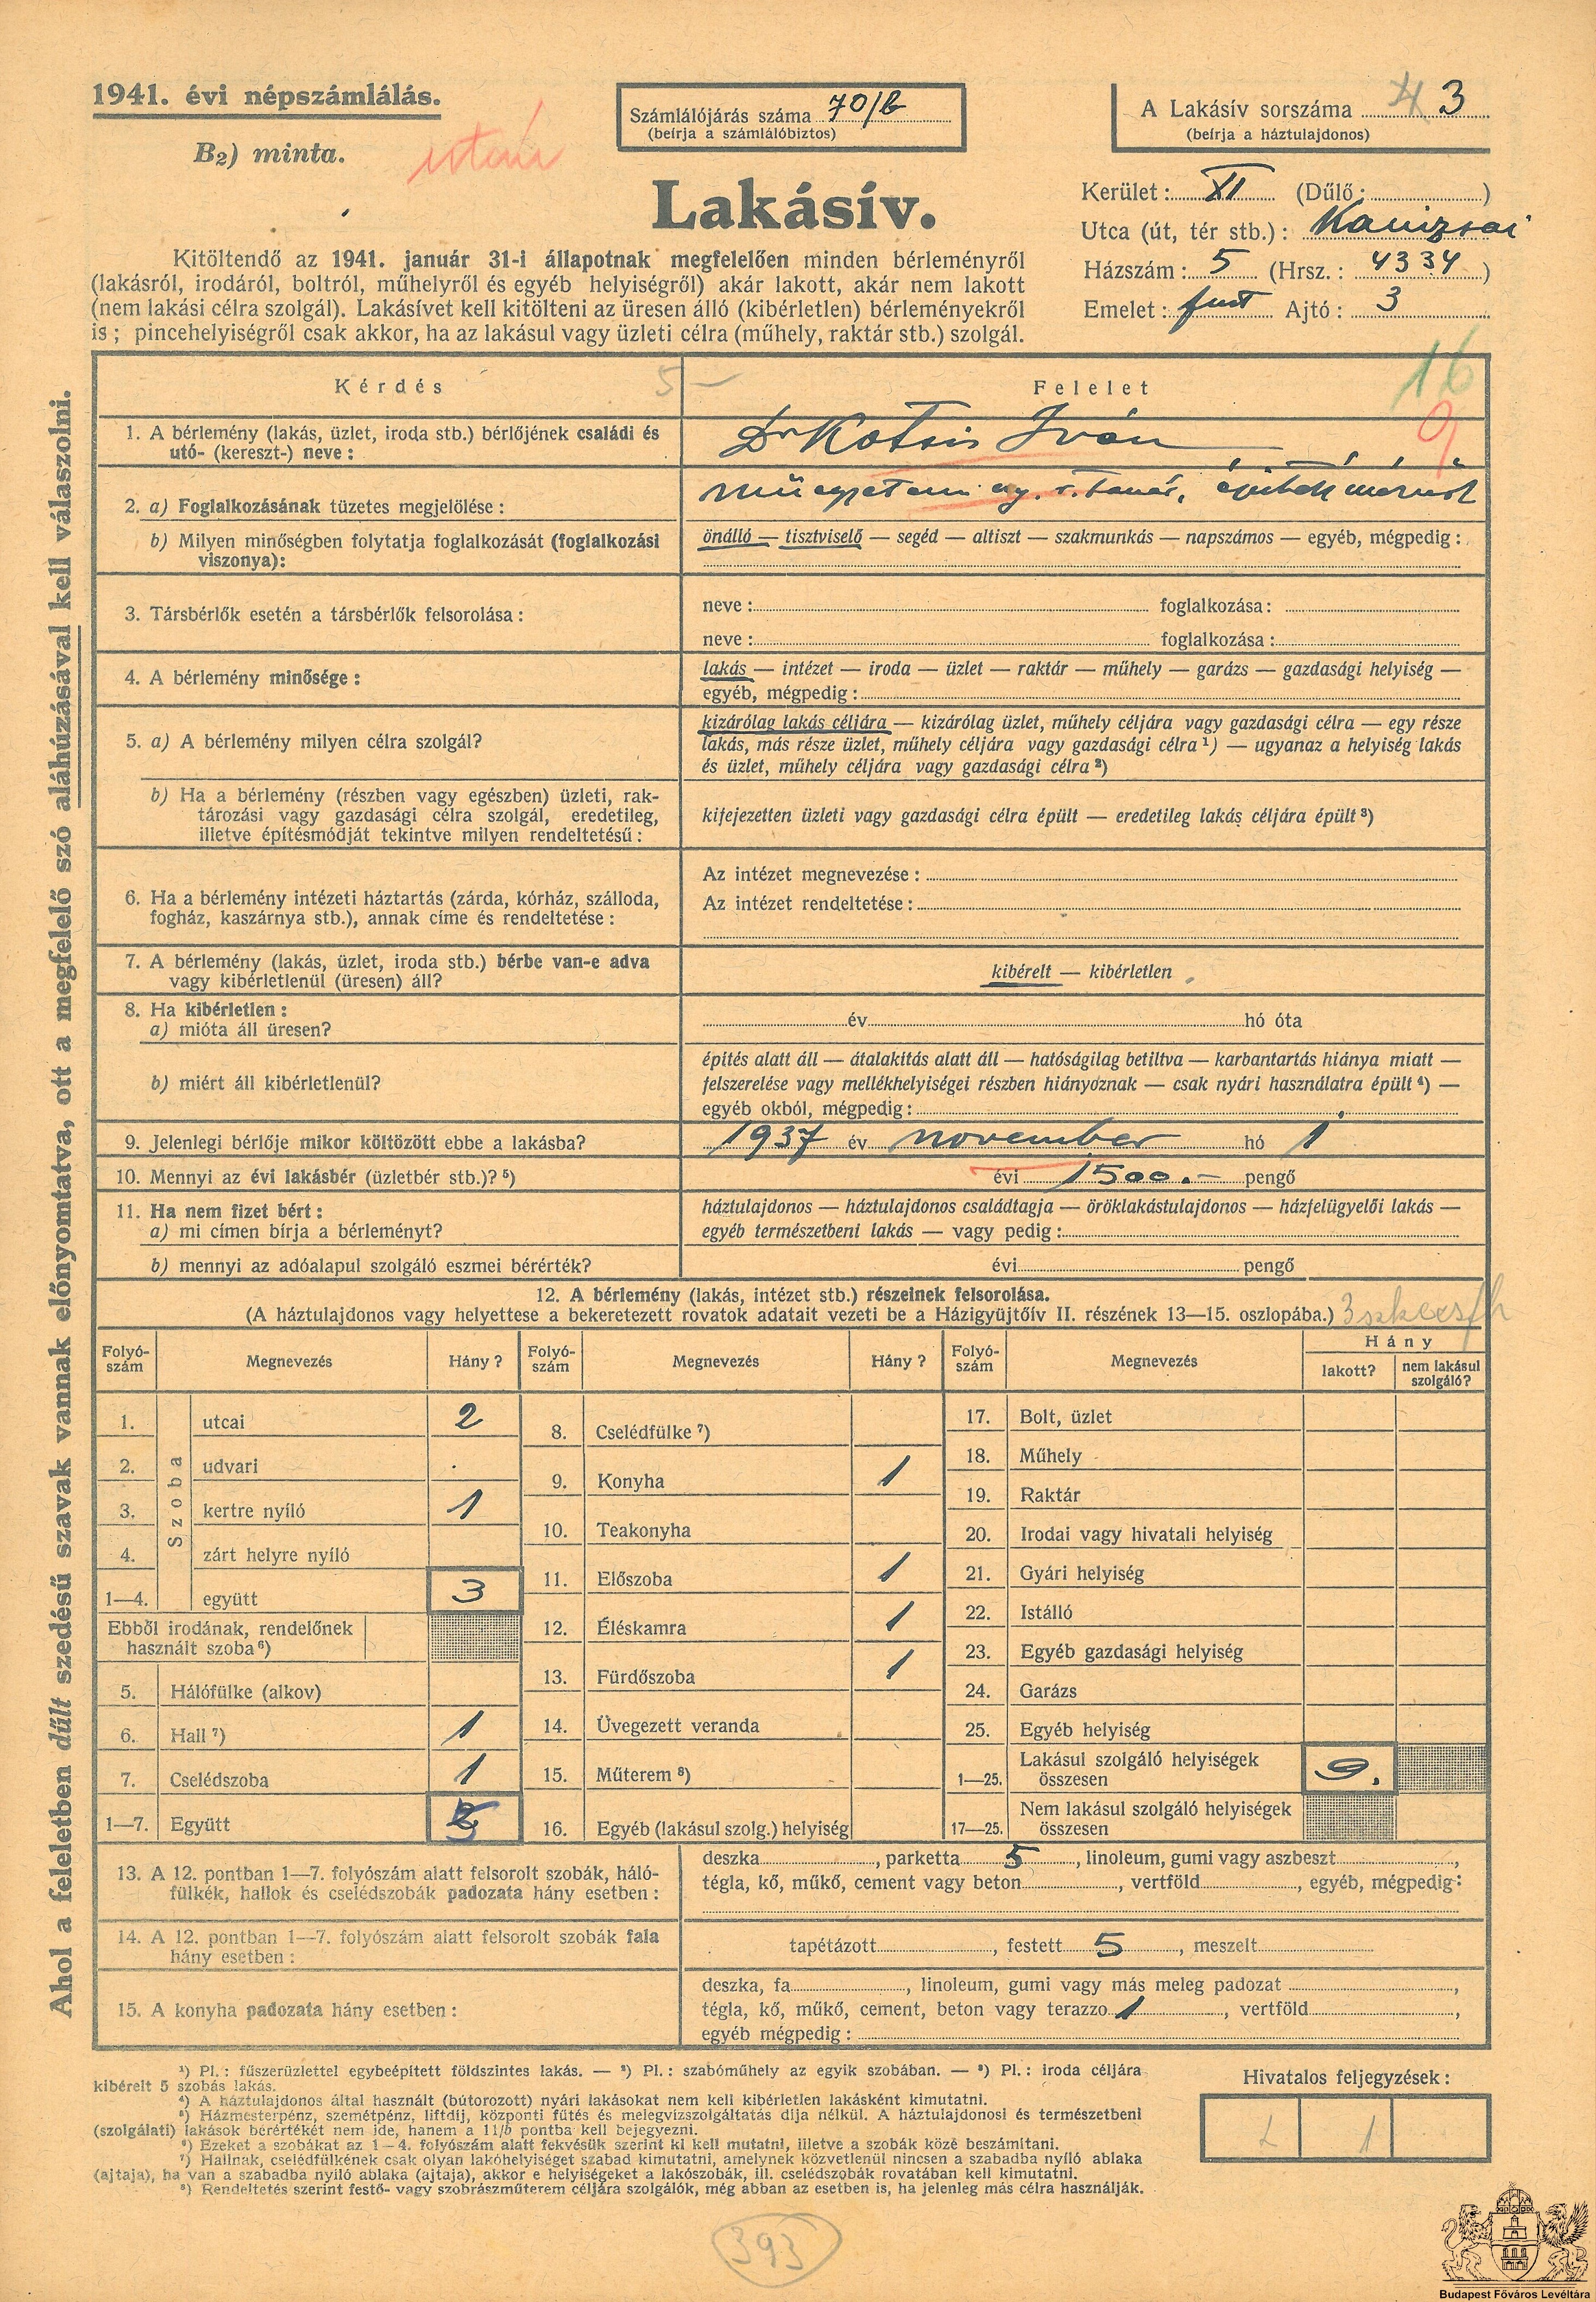 1941. évi népszámlálás.
B2) minta.
Számlálójárás száma 70/b
(beírja a számlálóbiztos)
A Lakásív sorszáma 3
(beírja a háztulajdonos)
Lakásív.
Kerület: XI (Dűlő: )
Utca (út, tér stb.): Kanizsai
Házszám: 5 (Hrsz.: 4334)
Emelet: fszt Ajtó: 3
Kitöltendő az 1941. január 31-i állapotnak megfelelően minden bérleményről
(lakásról, irodáról, boltról, műhelyről és egyéb helyiségről) akár lakott, akár nem lakott
(nem lakási célra szolgál). Lakásívet kell kitölteni az üresen álló (kibérletlen) bérleményekről
is; pincehelyiségről csak akkor, ha az lakásul vagy üzleti célra (műhely, raktár stb.) szolgál.
Ahol a feleletben dűlt szedésű szavak vannak előnyomtatva, ott a megfelelő szó aláhúzásával kell válaszolni.
Kérdés 5 —
Felelet 16
1. A bérlemény (lakás, üzlet, iroda stb.) bérlőjének családi és
utó- (kereszt-) neve:
Dr Kotsis Iván
2. a) Foglalkozásának tüzetes megjelölése:
műegyetemi ny. r. tanár, építészmérnök
b) Milyen minőségben folytatja foglalkozását (foglalkozási
viszonya):
önálló — tisztviselő — segéd — altiszt — szakmunkás — napszámos — egyéb, mégpedig:
3. Társbérlők esetén a társbérlők felsorolása:
neve: foglalkozása:
neve: foglalkozása:
4. A bérlemény minősége:
lakás — intézet — iroda — üzlet — raktár — műhely — garázs — gazdasági helyiség —
egyéb, mégpedig:
5. a) A bérlemény milyen célra szolgál?
kizárólag lakás céljára — kizárólag üzlet, műhely céljára vagy gazdasági célra — egy része
lakás, más része üzlet, műhely céljára vagy gazdasági célra ¹) — ugyanaz a helyiség lakás
és üzlet, műhely céljára vagy gazdasági célra ²)
b) Ha a bérlemény (részben vagy egészben) üzleti, rak-
tározási vagy gazdasági célra szolgál, eredetileg,
illetve építésmódját tekintve milyen rendeltetésű:
kifejezetten üzleti vagy gazdasági célra épült — eredetileg lakás céljára épült ³)
6. Ha a bérlemény intézeti háztartás (zárda, kórház, szálloda,
fogház, kaszárnya stb.), annak címe és rendeltetése:
Az intézet megnevezése:
Az intézet rendeltetése:
7. A bérlemény (lakás, üzlet, iroda stb.) bérbe van-e adva
vagy kibérletlenül (üresen) áll?
kibérelt — kibérletlen
8. Ha kibérletlen:
a) mióta áll üresen?
év hó óta
b) miért áll kibérletlenül?
építés alatt áll — átalakítás alatt áll — hatóságilag betiltva — karbantartás hiánya miatt —
felszerelése vagy mellékhelyiségei részben hiányoznak — csak nyári használatra épült ⁴) —
egyéb okból, mégpedig:
9. Jelenlegi bérlője mikor költözött ebbe a lakásba?
1937 év november hó 1
10. Mennyi az évi lakásbér (üzletbér stb.)? ⁵)
évi 1500.- pengő
11. Ha nem fizet bért:
a) mi címen bírja a bérleményt?
háztulajdonos — háztulajdonos családtagja — öröklakástulajdonos — házfelügyelői lakás —
egyéb természetbeni lakás — vagy pedig:
b) mennyi az adóalapul szolgáló eszmei bérérték?
évi pengő
12. A bérlemény (lakás, intézet stb.) részeinek felsorolása.
(A háztulajdonos vagy helyettese a bekeretezett rovatok adatait vezeti be a Házigyüjtőív II. részének 13—15. oszlopába.)
Folyó-szám Megnevezés Hány?
Szoba
1. utcai 2
2. udvari
3. kertre nyíló 1
4. zárt helyre nyíló
1—4. együtt 3
Ebből irodának, rendelőnek
használt szoba ⁶)
5. Hálófülke (alkov)
6. Hall ⁷) 1
7. Cselédszoba 1
1—7. Együtt 5
Folyó-szám Megnevezés Hány?
8. Cselédfülke ⁷)
9. Konyha 1
10. Teakonyha
11. Előszoba 1
12. Éléskamra 1
13. Fürdőszoba 1
14. Üvegezett veranda
15. Műterem ⁸)
16. Egyéb (lakásul szolg.) helyiség
Folyó-szám Megnevezés Hány lakott? nem lakásul szolgáló?
17. Bolt, üzlet
18. Műhely
19. Raktár
20. Irodai vagy hivatali helyiség
21. Gyári helyiség
22. Istálló
23. Egyéb gazdasági helyiség
24. Garázs
25. Egyéb helyiség
1—25. Lakásul szolgáló helyiségek összesen 9.
17—25. Nem lakásul szolgáló helyiségek összesen
13. A 12. pontban 1—7. folyószám alatt felsorolt szobák, háló-
fülkék, hallok és cselédszobák padozata hány esetben:
deszka , parketta 5 , linoleum, gumi vagy aszbeszt ,
tégla, kő, műkő, cement vagy beton , vertföld , egyéb, mégpedig:
14. A 12. pontban 1—7. folyószám alatt felsorolt szobák fala
hány esetben:
tapétázott , festett 5 , meszelt
15. A konyha padozata hány esetben:
deszka, fa , linoleum, gumi vagy más meleg padozat ,
tégla, kő, műkő, cement, beton vagy terazzo 1 , vertföld ,
egyéb mégpedig:
¹) Pl.: fűszerüzlettel egybeépített földszintes lakás. — ²) Pl.: szabóműhely az egyik szobában. — ³) Pl.: iroda céljára
kibérelt 5 szobás lakás.
⁴) A háztulajdonos által használt (bútorozott) nyári lakásokat nem kell kibérletlen lakásként kimutatni.
⁵) Házmesterpénz, szemétpénz, liftdíj, központi fűtés és melegvízszolgáltatás díja nélkül. A háztulajdonosi és természetbeni
(szolgálati) lakások bérértékét nem ide, hanem a 11/b pontba kell bejegyezni.
⁶) Ezeket a szobákat az 1—4. folyószám alatt fekvésük szerint ki kell mutatni, illetve a szobák közé beszámítani.
⁷) Hallnak, cselédfülkének csak olyan lakóhelyiséget szabad kimutatni, amelynek közvetlenül nincsen a szabadba nyíló ablaka
(ajtaja), ha van a szabadba nyíló ablaka (ajtaja), akkor e helyiségeket a lakószobák, ill. cselédszobák rovatában kell kimutatni.
⁸) Rendeltetés szerint festő- vagy szobrászműterem céljára szolgálók, még abban az esetben is, ha jelenleg más célra használják.
Hivatalos feljegyzések:
1
393
Budapest Főváros Levéltára